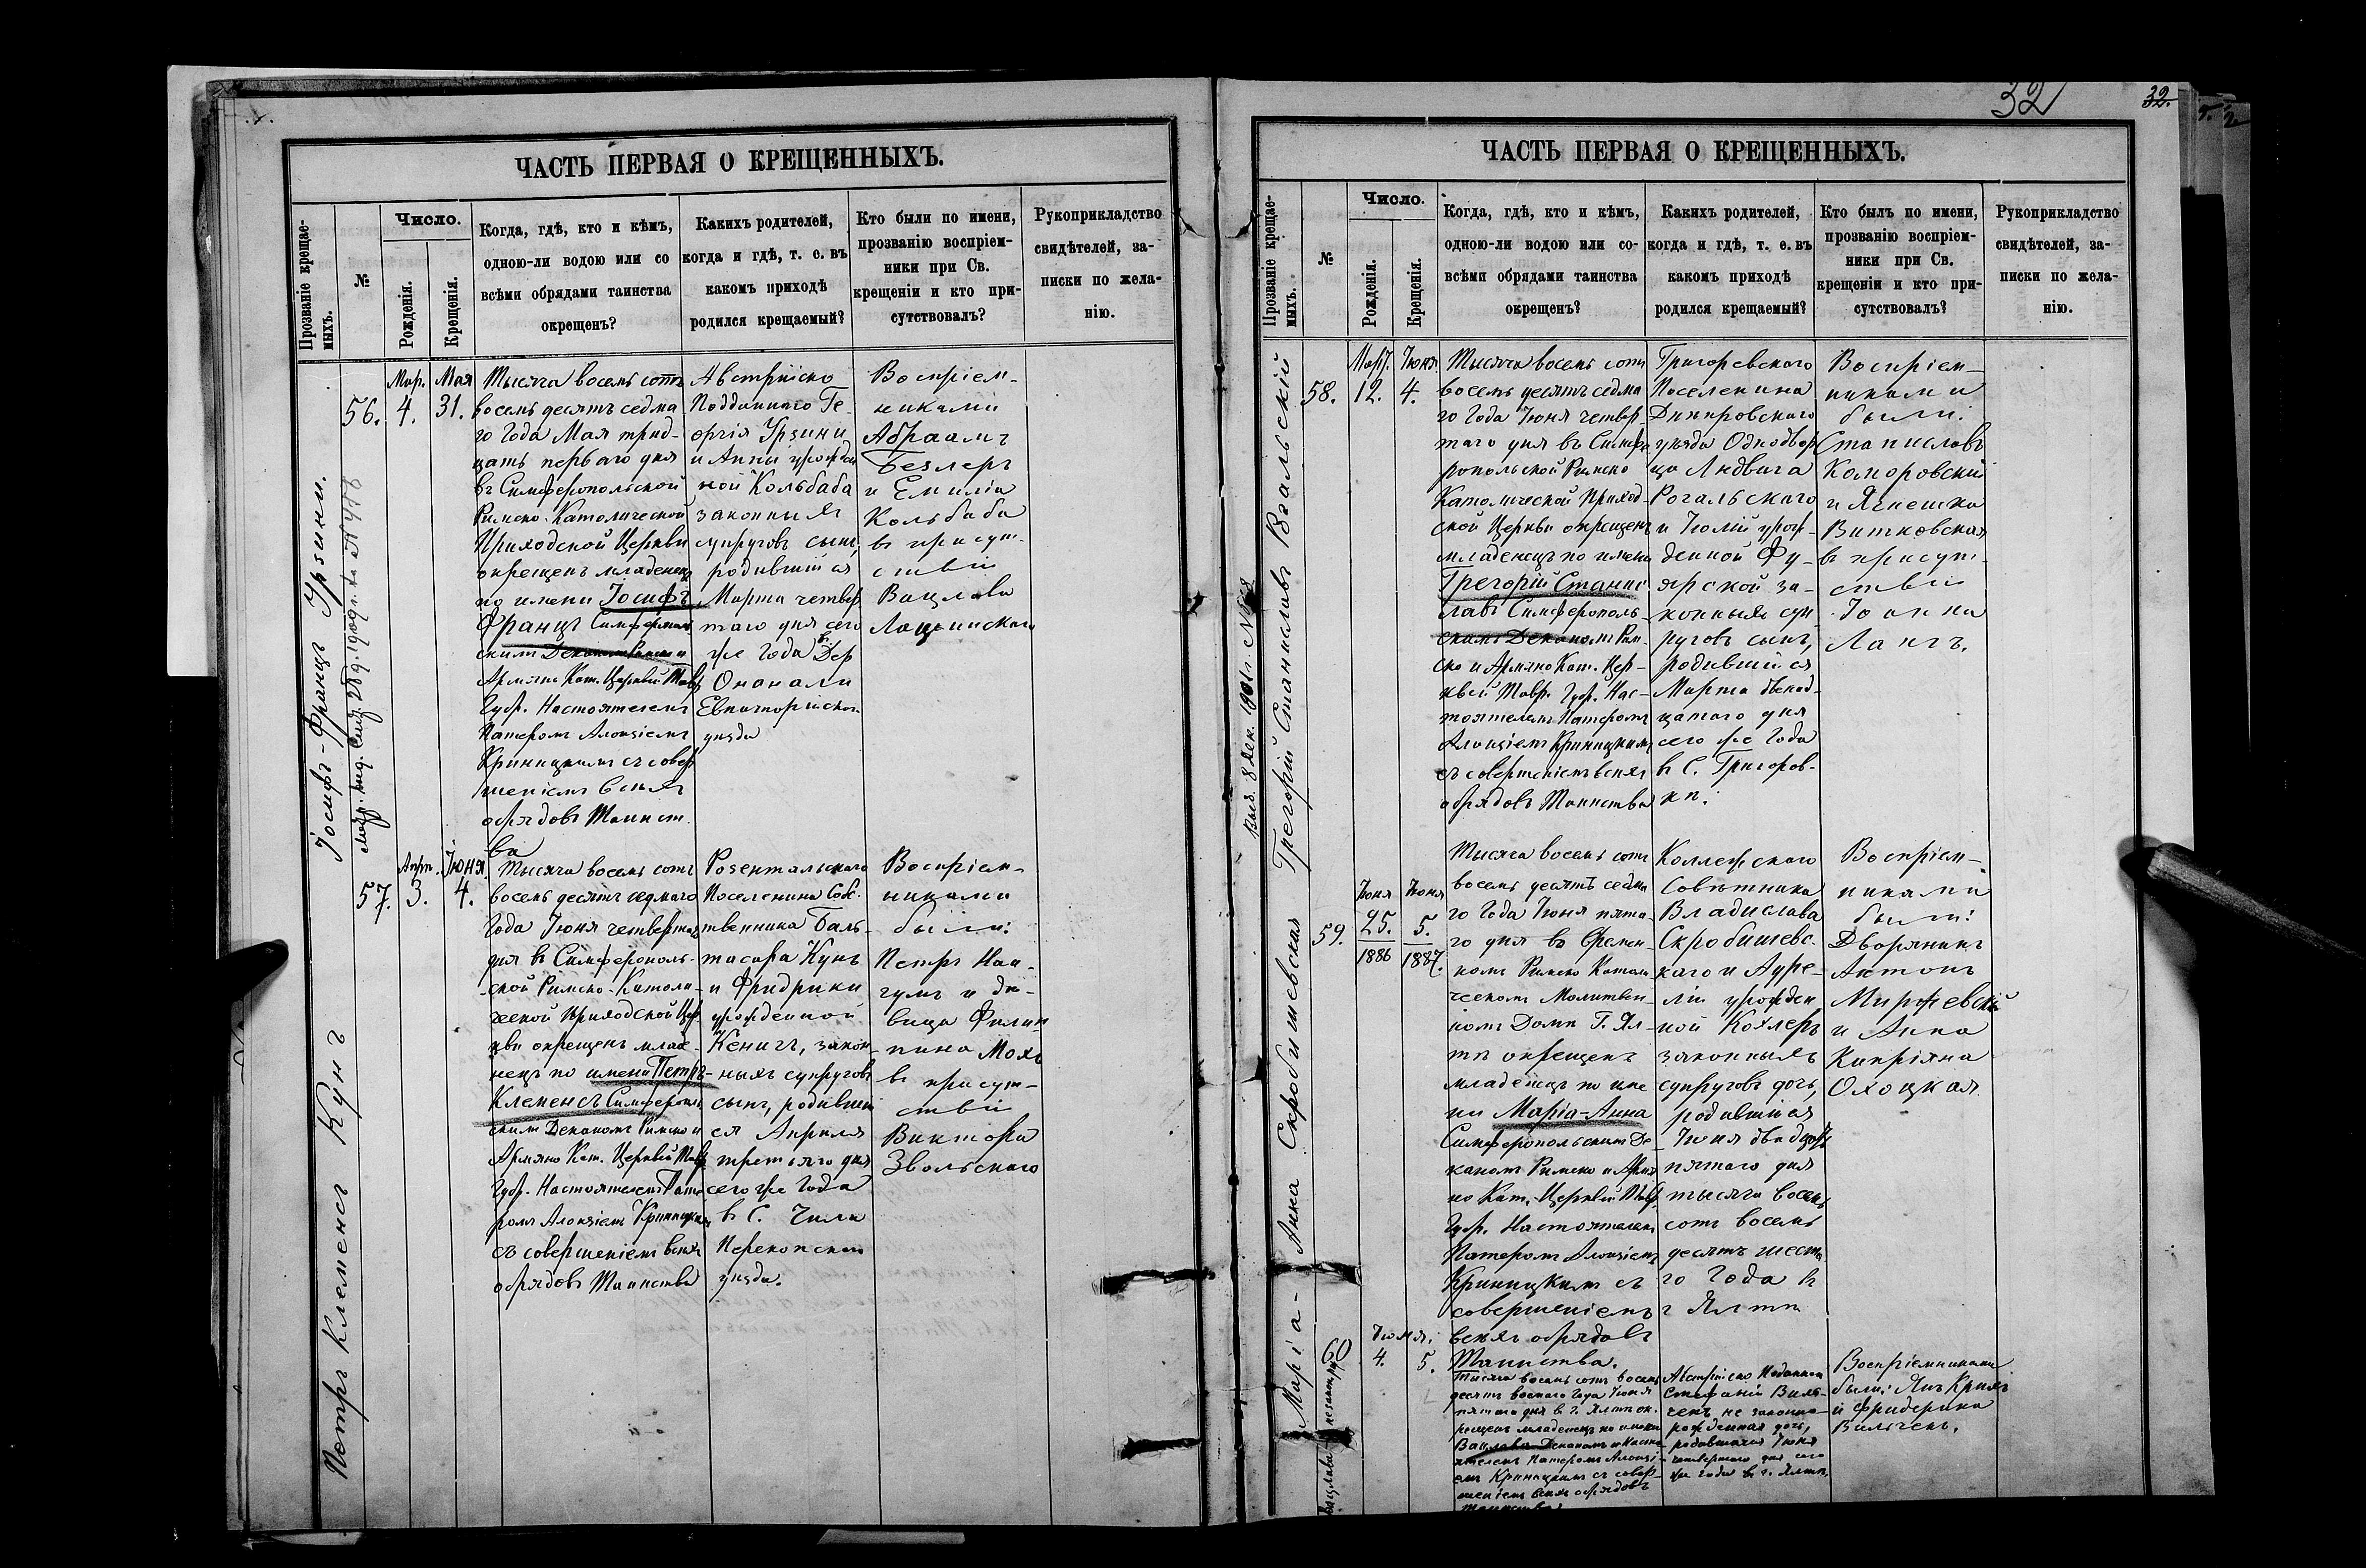 32
32.
ЧАСТЬ ПЕРВАЯ О КРЕЩЕННЫХЪ.
Прозваніе крещае-
мыхъ.
№
Число.
Рожденія.
Крещенія.
Когда, гдѣ, кто и кѣмъ,
одною-ли водою или со
всѣми обрядами таинства
окрещенъ?
Какихъ родителей,
когда и гдѣ, т. е. въ
какомъ приходѣ
родился крещаемый?
Кто были по имени,
прозванію воспріем-
ники при Св.
крещеніи и кто при-
сутствовалъ?
Рукоприкладство
свидѣтелей, за-
писки по жела-
нію.
Іосифъ-Францъ Урзини.
56.
Мар.
4.
Мая
31.
Тысяча восемь сотъ
восемь десятъ седма
го Года Мая трид-
цать перваго дня
въ Симферопольской
Римско-Католической
Приходской Церкви
окрещенъ младенецъ
по имени Іосифъ
Францъ
Армяно Кат. Церквей Тавр
Губ. Настоятелемъ
Патеромъ Алоизіемъ
Криницкимъ съ совер
шеніемъ всѣхъ
обрядовъ Таинст
ва
Австрійско
Подданнаго Ге-
оргія Урзини
и Анны урожден
ной Кольбаба
законныхъ
супруговъ сынъ,
родившійся
Марта четвер
таго дня сего
же Года въ Дер
Онанали
Евпаторійскаго
уѣзда
Воспріем-
никами
Абраамъ
Безлеръ
и Емилія
Кольбаба
въ присут-
ствіи
Вацлава
Петръ Клеменсъ Кунъ
57.
Апр.
3.
Іюня.
4.
Тысяча восемь сотъ
восемь десятъ седмаго
Года Іюня четвертаго
дня въ Симферополь-
ской Римско-Католи-
ческой Приходской Цер-
кви окрещенъ младе-
нецъ по имени Петръ-
Клеменсъ Симферополь
скимъ Деканомъ Римско и
Армяно Кат. Церквей Тавр
Губ. Настоятелемъ Пате
ромъ Алоизіемъ Криницкимъ
съ совершеніемъ всѣхъ
обрядовъ Таинства
Розентальскаго
Поселенина Соб-
твенника Баль-
тасара Кунъ
и Фридрики
урожденной
Кенигъ, закон-
ныхъ супруговъ
сынъ, родивший
ся Апрѣля
третьяго дня
сего же Года
въ С.
Перекопскаго
уѣзда.
Воспріем-
никами
были:
Петръ
и дѣ-
вица Филип
пина Мохъ
въ присут-
ствіи
Виктора
Звольскаго
ЧАСТЬ ПЕРВАЯ О КРЕЩЕННЫХЪ.
Прозваніе крещае-
мыхъ.
№
Число.
Рожденія.
Крещенія.
Когда, гдѣ, кто и кѣмъ,
одною-ли водою или со-
всѣми обрядами таинства
окрещенъ?
Какихъ родителей,
когда и гдѣ, т. е. въ
какомъ приходѣ
родился крещаемый?
Кто былъ по имени,
прозванію воспріем-
ники при Св.
крещеніи и кто при-
сутствовалъ?
Рукоприкладство
свидѣтелей, за-
писки по жела-
нію.
Грегорій Станиславъ Рогальскій
58.
Март.
12.
Іюня.
4.
Тысяча восемь сотъ
восемь десятъ седма
го Года Іюня четвер-
таго дня въ Симфе
ропольской Римско
Католической Приход-
ской Церкви окрещенъ
младенецъ по имени
Грегорій Станис
лавъ Симферополь
скимъ Деканомъ Рим-
ско и Армяно Кат. Цер-
квей Тавр. Губ. Нас-
тоятелемъ Патеромъ
Алоизіемъ Криницкимъ
съ совершеніемъ всѣхъ
обрядовъ Таинства
Григорьевскаго
Поселенина
Днѣпровскаго
уѣзда Однодвор
ца Людвига
Рогальскаго
и Юліи урож-
денной Фу-
ярской за-
конныхъ суп
руговъ сынъ,
родившійся
Марта двенад-
цатаго дня
сего же Года
въ С. Григоров-
кѣ.
Воспріем-
никами
были:
Станиславъ
Коморовскій
и Ягнешка
Витковская
въ присут-
ствіи
Іоанна
Лангъ.
Марія-Анна Скробишевская
59.
Іюня
25.
1886
Іюня
5.
1887.
Тысяча восемь сотъ
восемь десятъ седма
го Года Іюня пята-
го дня въ Времен-
номъ Римско Католи
ческомъ Молитвен-
номъ Домѣ Г. Ял-
тѣ окрещенъ
младенецъ по име
ни Марія-Анна
Симферопольскимъ Де-
каномъ Римско и Армя
но Кат. Церквей Тавр.
Губ. Настоятелемъ
Патеромъ Алоизіемъ
Криницкимъ съ
совершеніемъ
всѣхъ обрядовъ
Таинства.
Коллежскаго
Совѣтника
Владислава
Скробишевс-
каго и Ауре-
ліи урожден
ной Кохлеръ
законныхъ
супруговъ дочь,
родившійся
Іюня двадцать
пятаго дня
тысяча восемь
сотъ восемь
десятъ шеста
го Года въ
г Ялтѣ
Воспріем-
никами
были:
Дворянинъ
Антонъ
Миржевскій
и Анна
Кипріяна
Охоцкая
60
Іюня.
4.
5.
Тысяча восемь сотъ восемь
десятъ Года Іюня
пятаго дня въ г. Ялтѣ ок-
рещенъ младенецъ по имени
Деканомъ и Насто
ятелемъ Патеромъ Алоизі-
емъ Криницкимъ съ совер-
шеніемъ всѣхъ обрядовъ
Таинства.
Австрійско Подданной
Стефаніи Виль-
чекъ не законно
рожденная дочь,
родившаяся Іюня
четвертаго дня сего
же года въ г. Ялтѣ.
Воспріемниками
были: Янъ
и Фридерика
Вильчекъ.